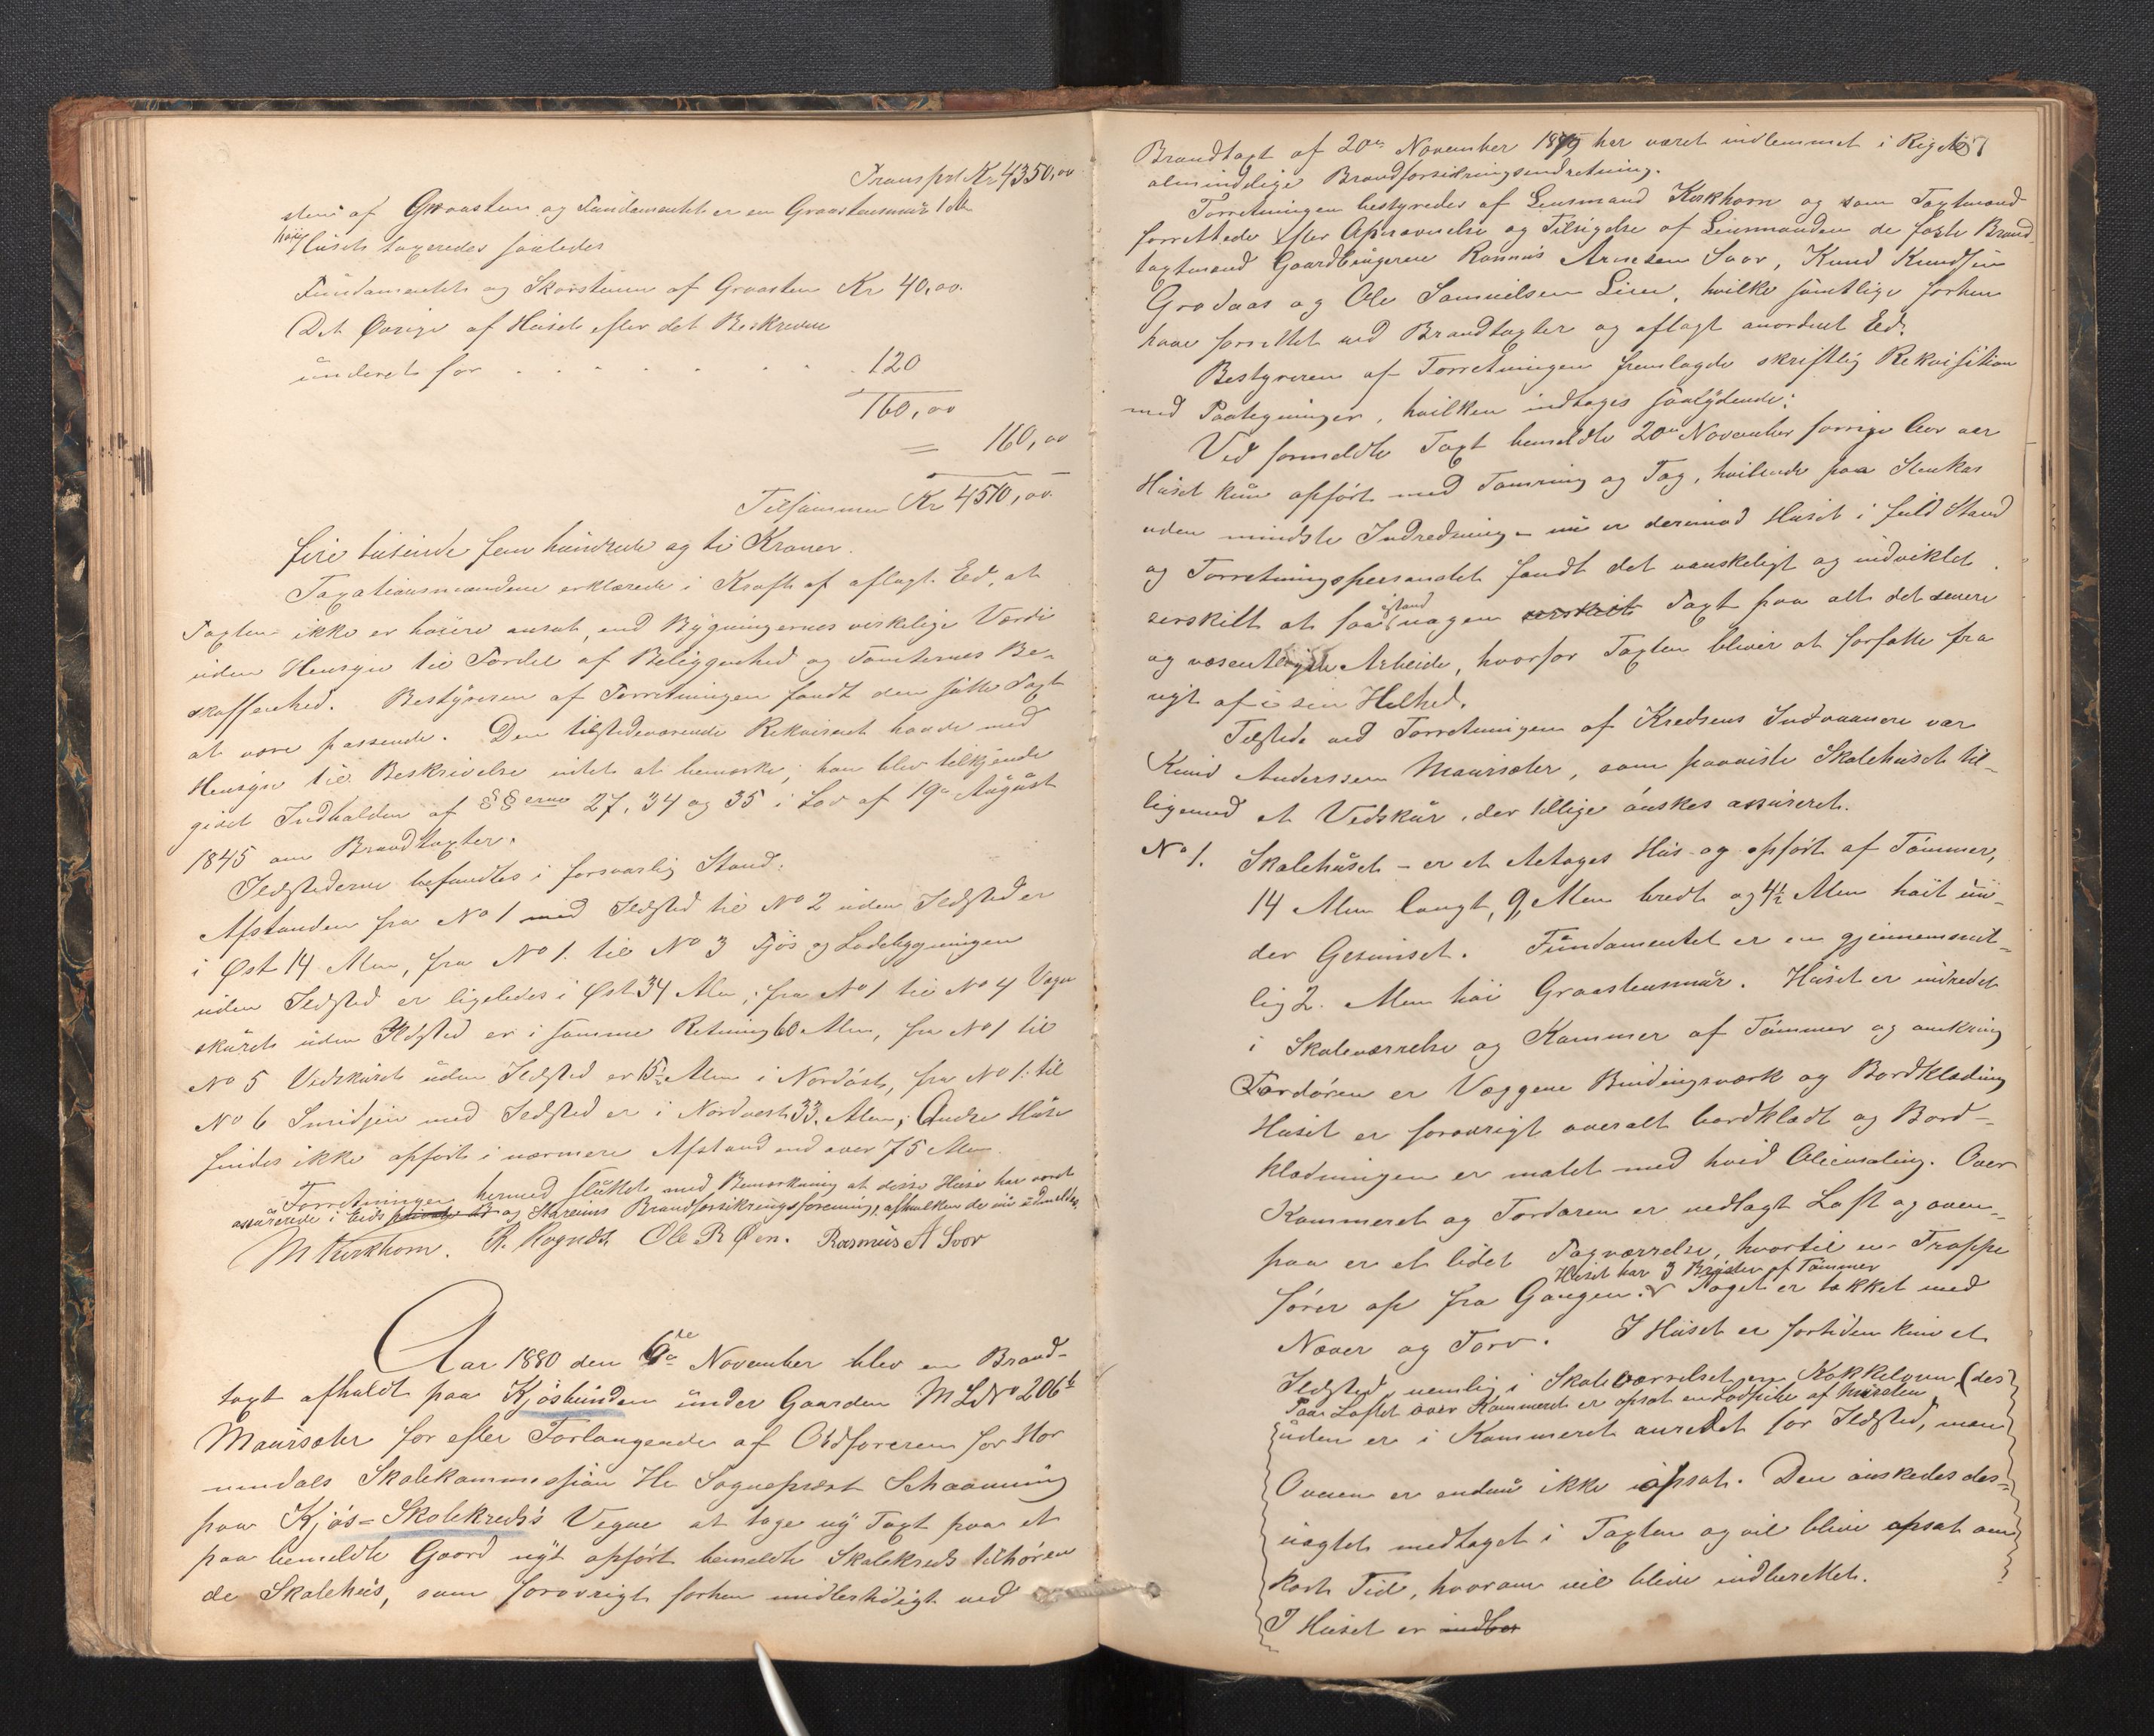 Transport Kr 4350,00
sten af Graasten og Fundamentet er en Graasteensmuur 1 Al.
høi Huset taxeredes saaledes
Fundamentet og Skorstenen af Graasten Kr 40,00.
Det Øvrige af Huset efter det Beskrevne
vurderet for . . . . . . . 120
160,00
= 160,00
Tilsammen Kr 4510,00.
fire tusinde fem hundrede og ti Kroner.
Taxationsmændene erklærede i Kraft af aflagt Eed, at
Taxten ikke er høiere ansat, end Bygningernes virkelige Værdi
uden Hensyn til Fordel af Beliggenhed og Tomternes Be-
skaffenhed. Bestyreren af Forretningen fandt den satte Taxt
at være passende. Den tilstedeværende Rekvirent havde med
Hensyn til Beskrivelse intet at bemærke; han blev tilkjende
givet Indholden af §§erne 27, 34 og 35 i Lov af 19de August
1845 om Brandtaxter.
Ildstederne befandtes i forsvarlig Stand.
Afstanden fra No 1 med Ildsted til No 2 uden Ildsted er
i Øst 14 Alen, fra No 1. til No 3 Fjøs og Ladebygningen
uden Ildsted er ligeledes i Øst 34 Alen; fra No 1 til No 4 Vogn
skuret uden Ildsted er i samme Retning 60 Alen, fra No 1 til
No 5 Vedskuret uden Ildsted er 15 Alen i Nordøst, fra No 1. til
No 6 Smidjen med Ildsted er i Nordvest 33. Alen; Andre Huse
findes ikke opført i nærmere Afstand end over 75 Alen.
Forretningen hermed sluttet med Bemærkning at disse Huse har været
assurerede i Eids private Br og Starems Brandforsikringsforening, afhvilken de nu udmeldes.
M Kirkhorn. R. Rognes Ole R Øen. Rasmus A Soor
Aar 1880 den 6te November blev en Brand-
taxt afholdt paa Kjøsbunden under Gaarden M L No 206b
Maursæter for efter Forlangende af Ordføreren for Hor
nindals Skolekommission Hr. Sognepræst Schaanning
paa Kjøs-Skolekreds's Vegne at tage ny Taxt paa et
paa bemeldte Gaard nyt opført bemeldte Skolekreds tilhøren
de Skolehus, som forøvrigt forhen midlertidigt ved
67
Brandtaxt af 20de November 1879 har været indlemmet i Rigets
almindelige Brandforsikringsindretning.
Forretningen bestyredes af Lensmand Kirkhorn og som Taxtmænd
forrettede efter Opnævnelse og Tilsigelse af Lensmanden de faste Brand-
taxtmænd Gaardbrugerne Rasmus Arnesen Soor, Knud Knudsen
Grodaas og Ole Samuelsen Lien, hvilke samtlige forhen
have forrettet ved Brandtaxter og aflagt anordnet Eed.
Bestyreren af Forretningen fremlagde skriftlig Rekvisition
med Paategninger, hvilken indtages saalydende:
Ved formeldte Taxt bemeldte 20de November forrige Aar var
Huset kun opført med Tømring og Tag, hvilende paa Stenkar
uden mindste Indredning – nu er derimod Huset i fuld Stand
og Forretningspersonalet fandt det vanskeligt og indviklet
særskilt at faa istand nogen særskilt Taxt paa alt det senere
og væsentligste Arbeide, hvorfor Taxten bliver at forfatte fra
nyt af i sin Helhed.
Tilstede ved Forretningen af Kredsens Indvaanere var
Knud Anderssen Maursæter, som paaviste Skolehuset til-
ligemed et Vedskur, der tillige ønskes assureret.
No 1. Skolehuset – er et Aetages Hus og opført af Tømmer,
14 Alen langt, 9 Alen bredt og 4½ Alen høit un-
der Gesimset. Fundamentet er en gjennemsnit-
lig 2. Alen høi Graasteensmur. Huset er indredet
i Skoleværrelse og Kammer af Tømmer og omkring
Fordøren er Væggene Bindingsværk og Bordklædning
Huset er forøvrigt overalt bordklædt og Bord-
klædningen er malet med hvid Oliemaling. Over
Kammeret og Fordøren er nedlagt Loft og oven-
paa er et lidet Tagværrelse, hvortil en Trappe
Huset har 3 Bjelker af Tømmer
fører op fra Gangen. Taget er tækket med
Næver og Torv. I Huset er fortiden kun et
Ildsted, nemlig i Skoleværrelset en Kakkelovn, (des
Paa Loftet over Kammeret er opsat en Lodpibe af Mursten
uden er i Kammeret anredet for Ildsted, men
Ovnen er endnu ikke opsat. Den ønskedes des-
uagtet medtaget i Taxten og vil blive opsat om
kort Tid, hvorom vil blive indberettet.
I Huset er indber